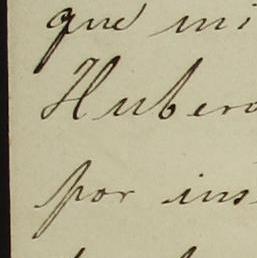 que mi
Hubera
por ins